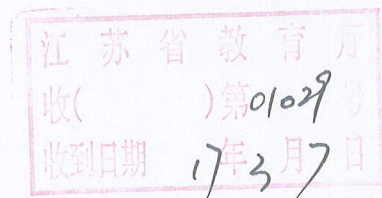 江苏省教育厅
收( )第01029号
收到日期 17年3月7日